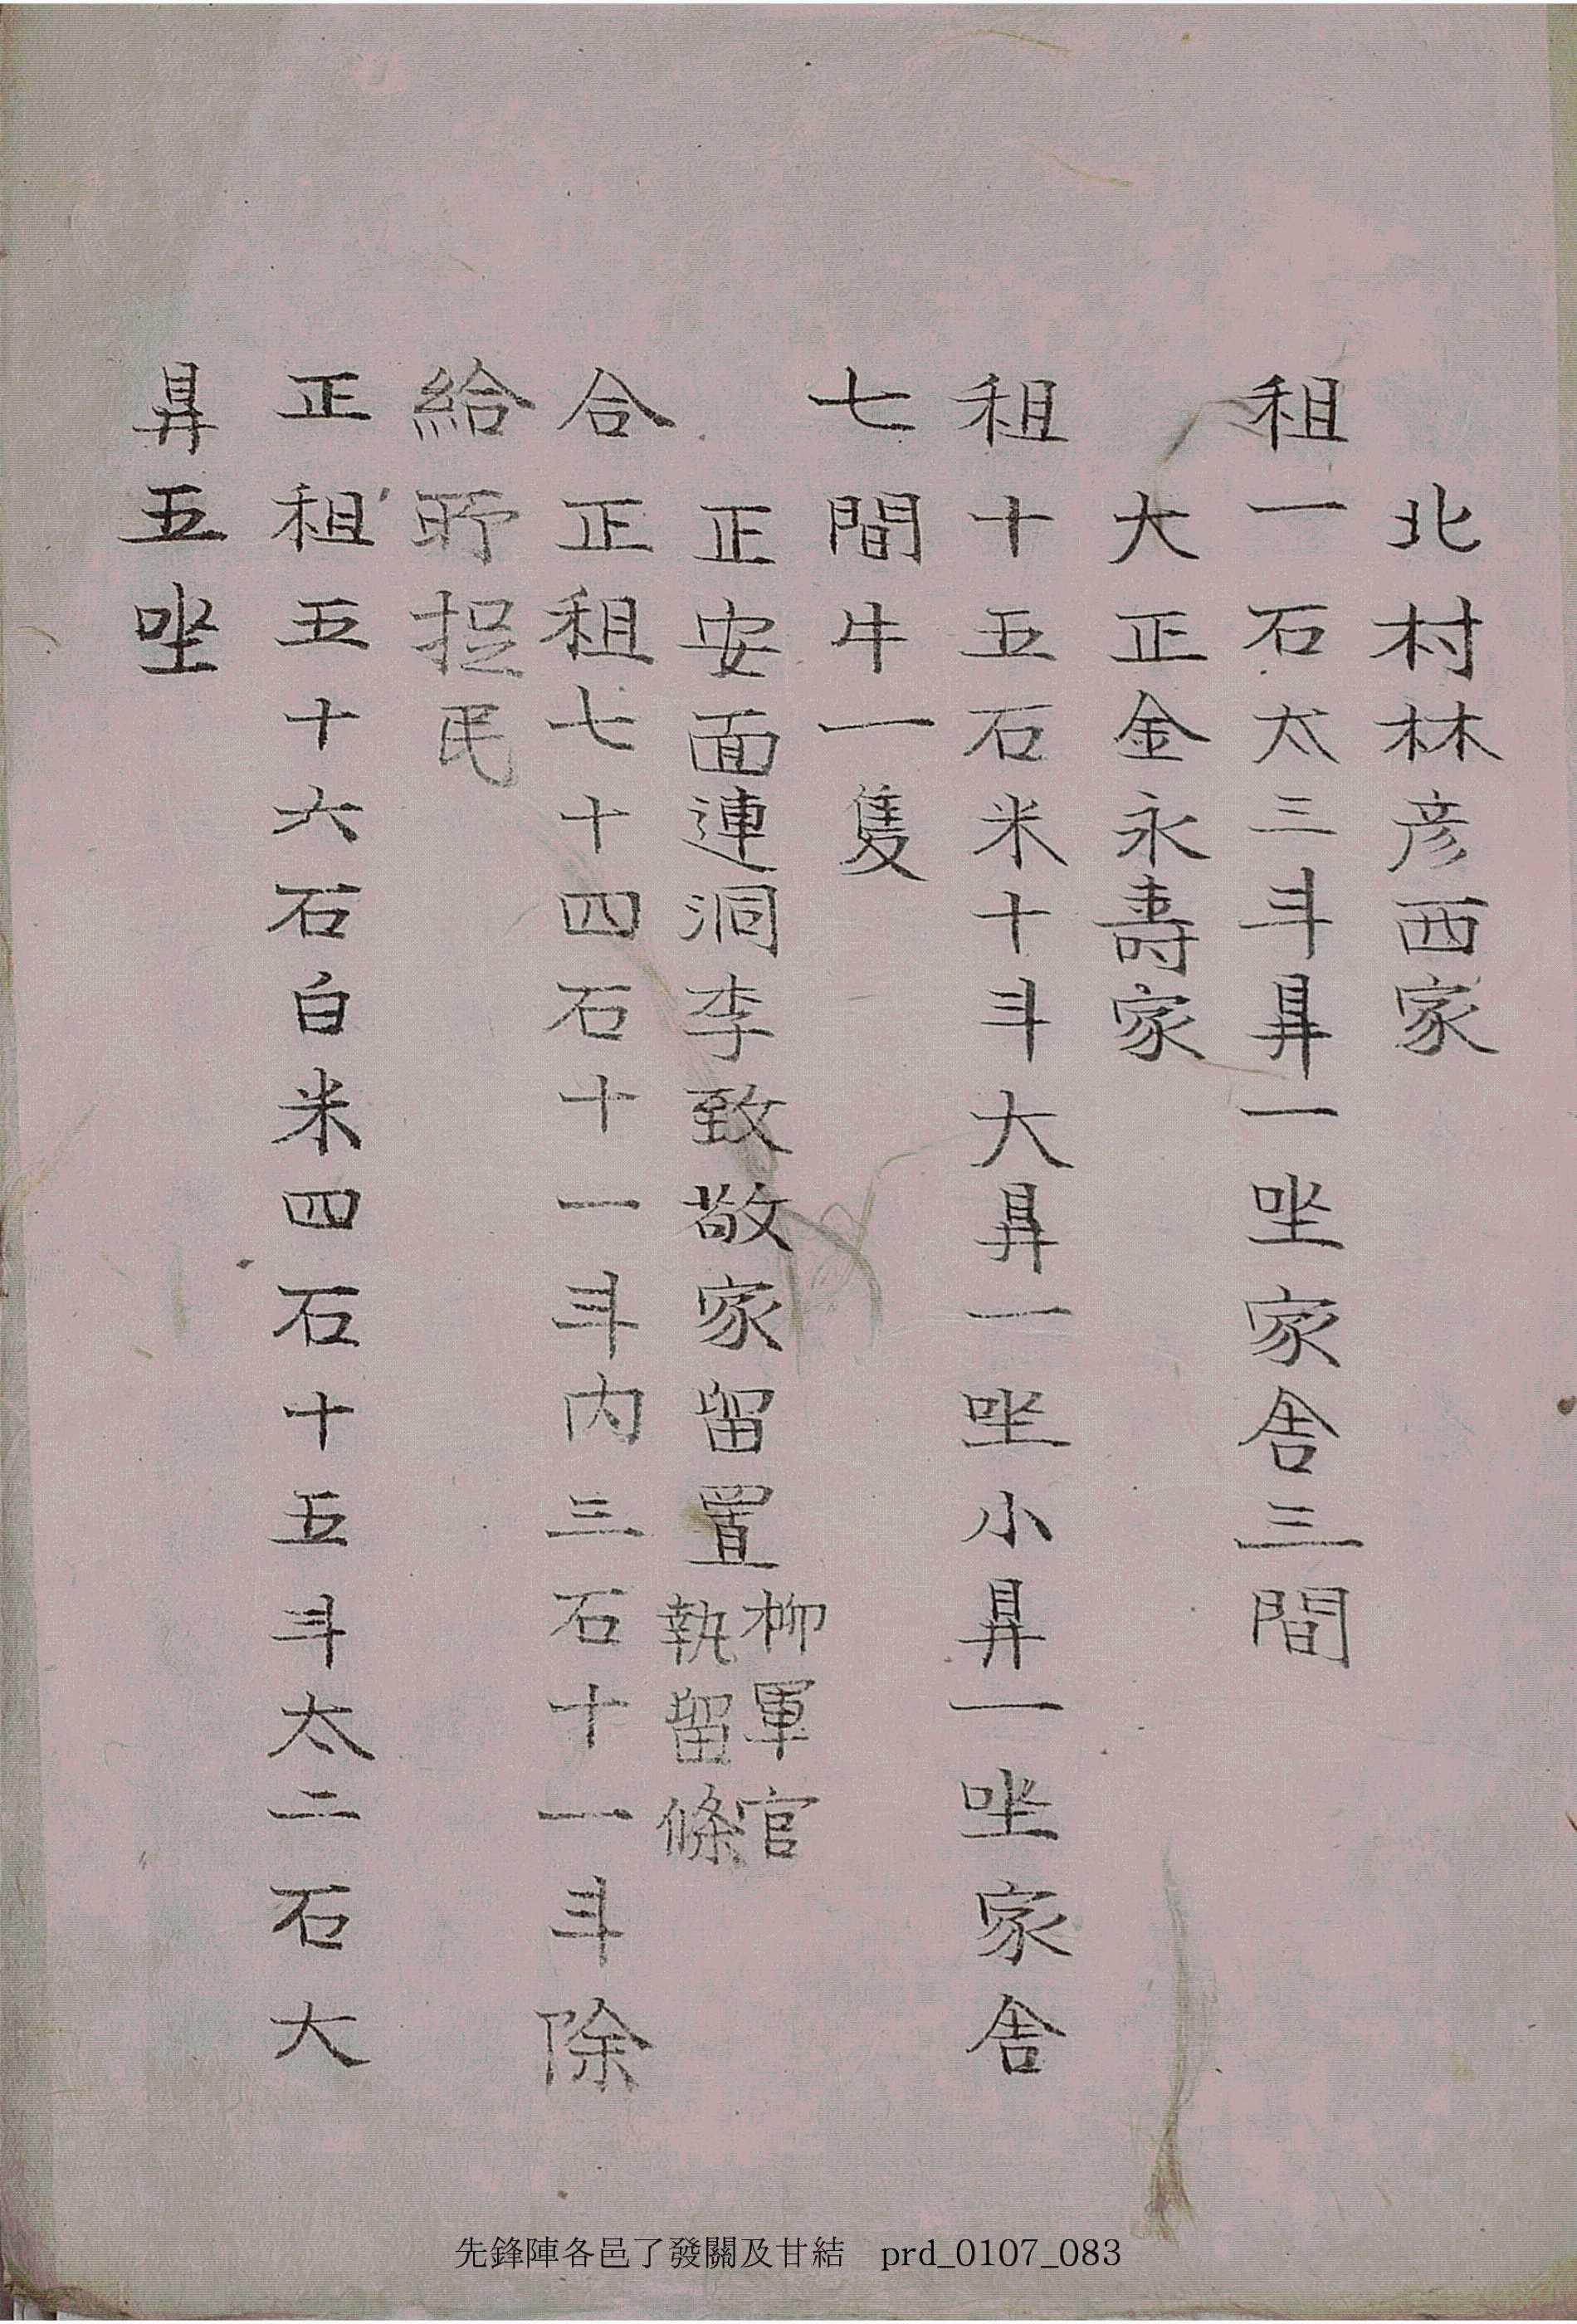 北村林彦西家
租一石太三斗鼎一坐家舍三間
大正金永壽家
租十五石米十斗大鼎一坐小鼎一坐家舍
七間牛一隻
正安面連洞李致敬家留置柳軍官執留條
合正租七十四石十一斗內三石十一斗除
給所捉民
正租五十六石白米四石十五斗太二石大
鼎五坐
先鋒陣各邑了發關及甘結 prd_0107_083